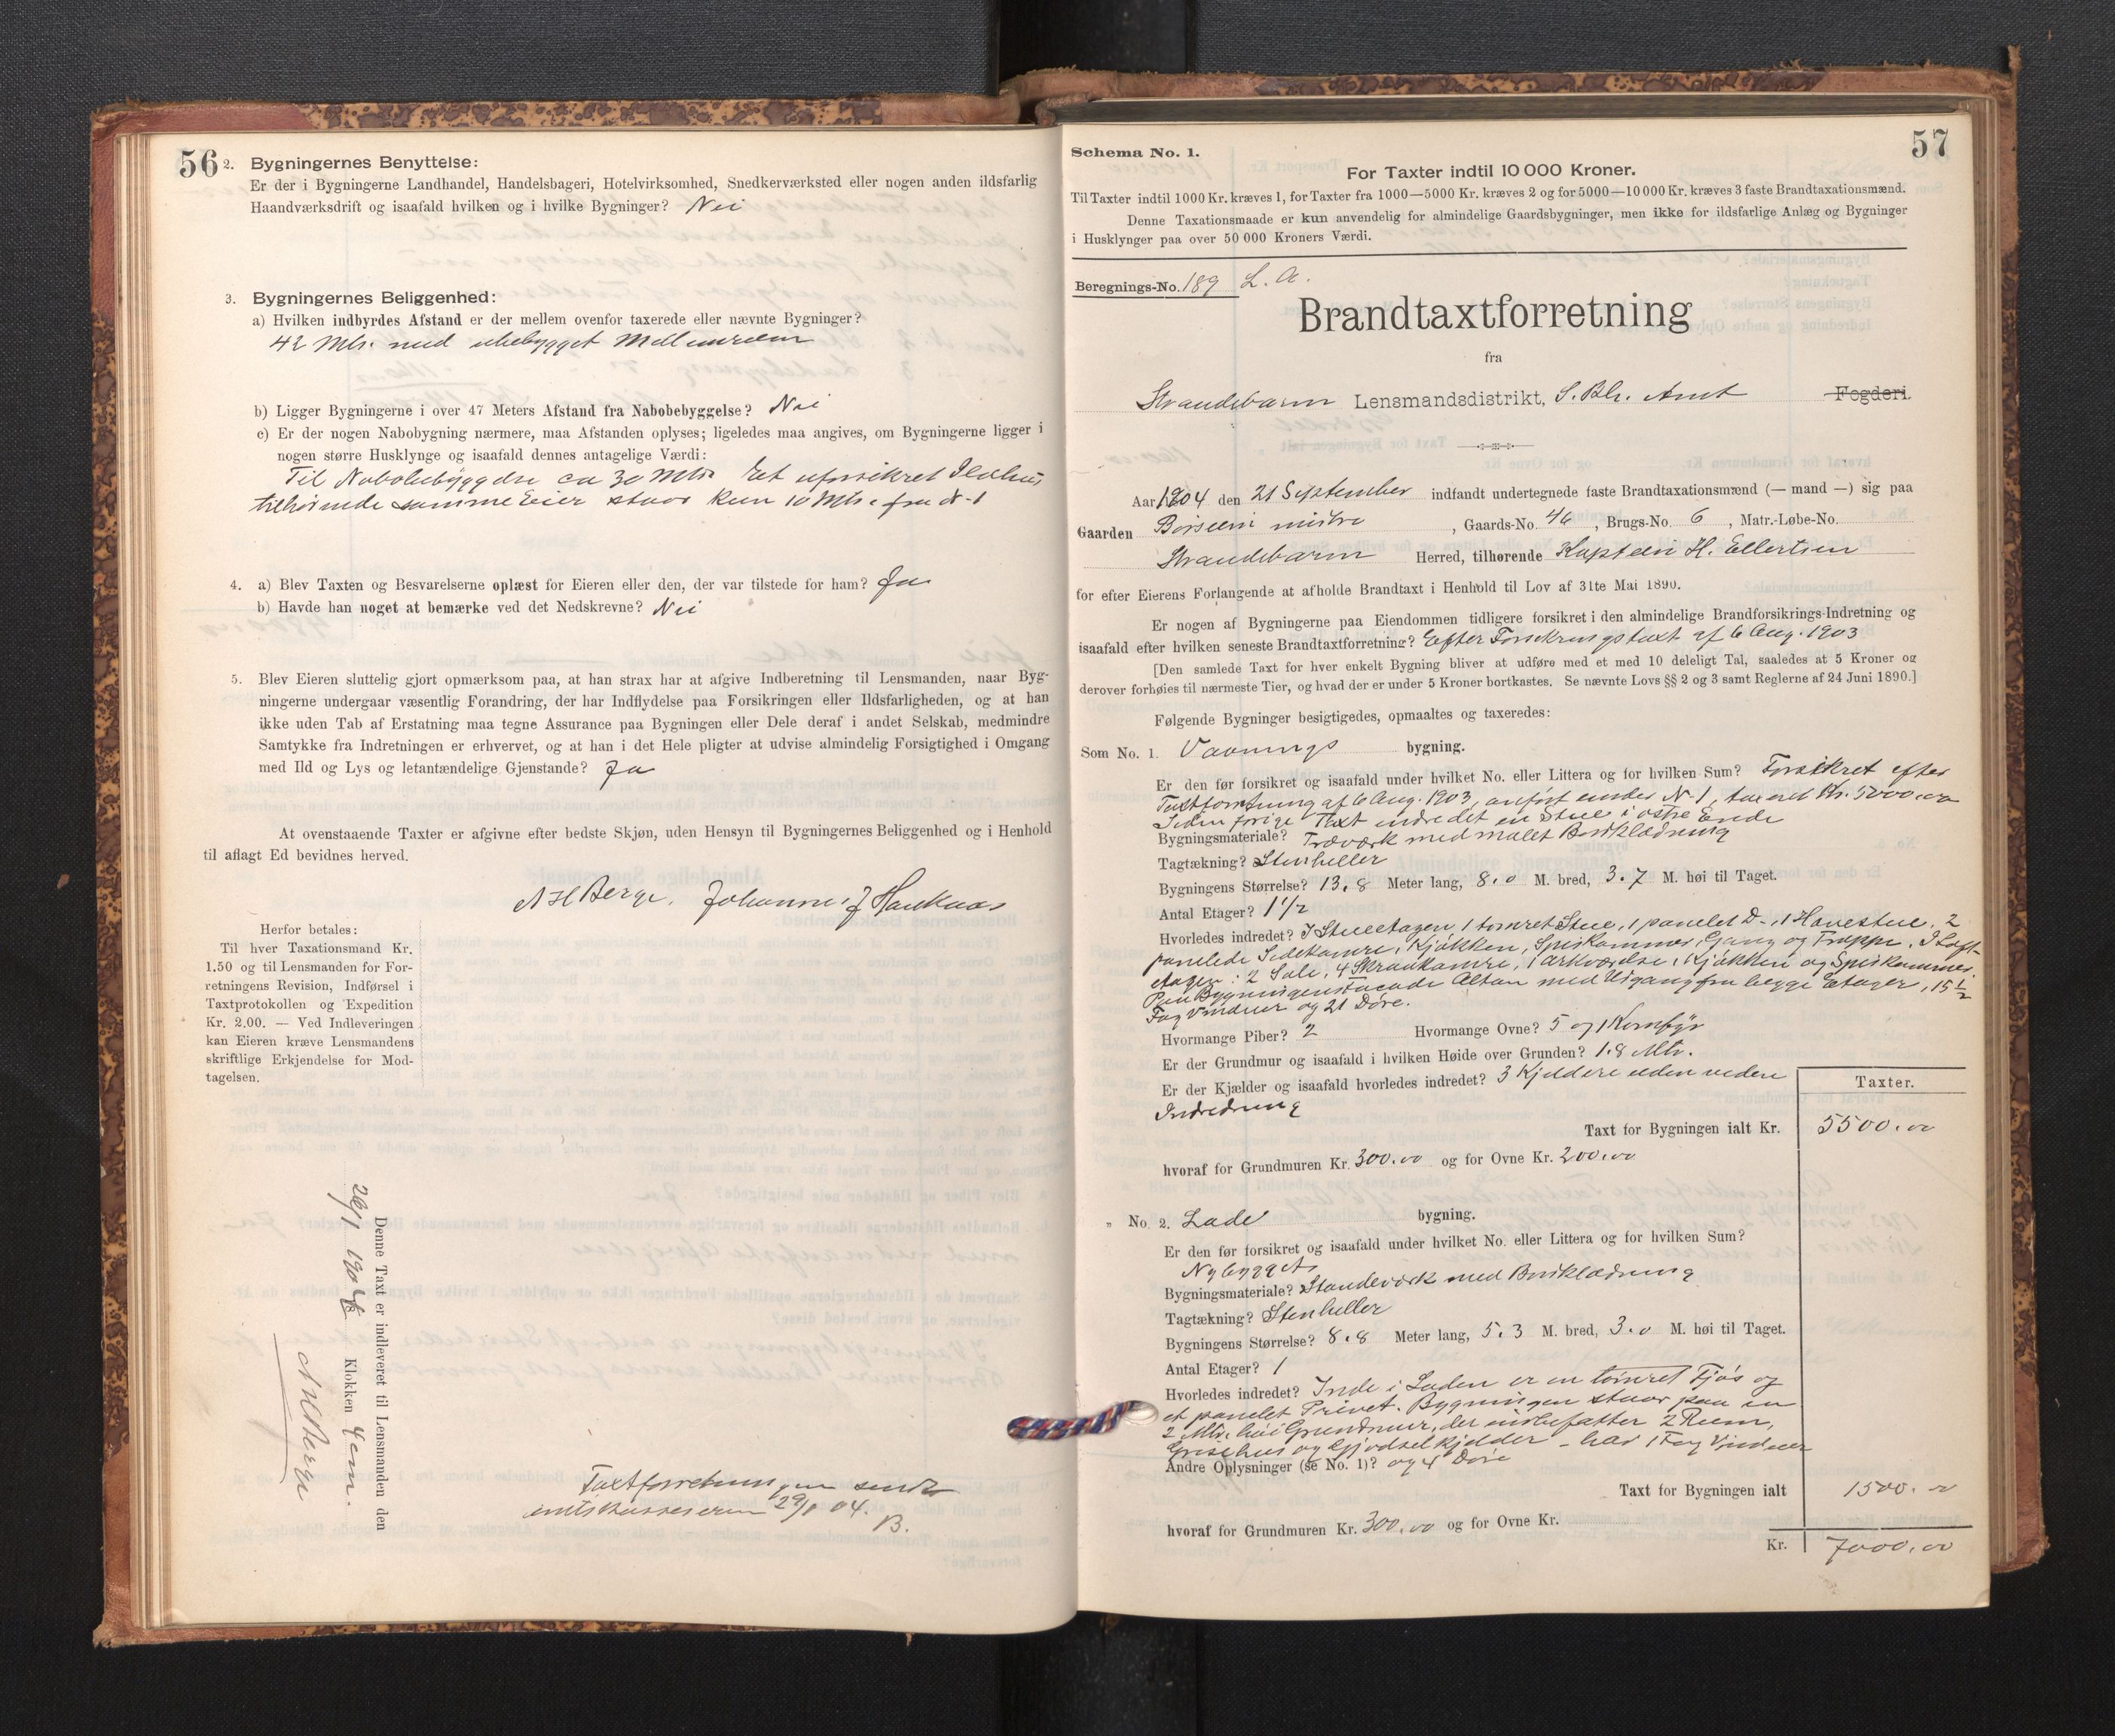 56
2. Bygningernes Benyttelse:
Er der i Bygningerne Landhandel, Handelsbageri, Hotelvirksomhed, Snedkerværksted eller nogen anden ildsfarlig
Haandværksdrift og isaafald hvilken og i hvilke Bygninger? Nei
3. Bygningernes Beliggenhed:
a) Hvilken indbyrdes Afstand er der mellem ovenfor taxerede eller nævnte Bygninger?
42 Mtr. med ubebygget Mellemrum
b) Ligger Bygningerne i over 47 Meters Afstand fra Nabobebyggelse? Nei
c) Er der nogen Nabobygning nærmere, maa Afstanden oplyses; ligeledes maa angives, om Bygningerne ligger i
nogen større Husklynge og isaafald dennes antagelige Værdi:
Til Nabobebyggelse ca 30 Mtr. Et uforsikret Ildhus,
tilhörende samme Eier staar kun 10 Mtr. fra N. 1
4. a) Blev Taxten og Besvarelserne oplæst for Eieren eller den, der var tilstede for ham? Ja
b) Havde han noget at bemærke ved det Nedskrevne? Nei
5. Blev Eieren sluttelig gjort opmærksom paa, at han strax har at afgive Indberetning til Lensmanden, naar Byg-
ningerne undergaar væsentlig Forandring, der har Indflydelse paa Forsikringen eller Ildsfarligheden, og at han
ikke uden Tab af Erstatning maa tegne Assurance paa Bygningen eller Dele deraf i andet Selskab, medmindre
Samtykke fra Indretningen er erhvervet, og at han i det Hele pligter at udvise almindelig Forsigtighed i Omgang
med Ild og Lys og letantændelige Gjenstande? Ja
At ovenstaaende Taxter er afgivne efter bedste Skjøn, uden Hensyn til Bygningernes Beliggenhed og i Henhold
til aflagt Ed bevidnes herved.
N H Berge. Johannes J Haukaas
Herfor betales:
Til hver Taxationsmand Kr.
1.50 og til Lensmanden for For-
retningens Revision, Indførsel i
Taxtprotokollen og Expedition
Kr. 2.00. — Ved Indleveringen
kan Eieren kræve Lensmandens
skriftlige Erkjendelse for Mod-
tagelsen.
Denne Taxt er indleveret til Lensmanden den
26/9 1904 Klokken 4 em.
N H Berge
Taxtforretningen sendt
amtskassereren 29/9 04.
B.
57
Schema No. 1.
For Taxter indtil 10 000 Kroner.
Til Taxter indtil 1000 Kr. kræves 1, for Taxter fra 1000—5000 Kr. kræves 2 og for 5000—10 000 Kr. kræves 3 faste Brandtaxationsmænd.
Denne Taxationsmaade er kun anvendelig for almindelige Gaardsbygninger, men ikke for ildsfarlige Anlæg og Bygninger
i Husklynger paa over 50 000 Kroners Værdi.
Beregnings-No. 189 L. A.
Brandtaxtforretning
fra
Strandebarm Lensmandsdistrikt, S. Bh. Amt Fogderi.
Aar 1904 den 21 September indfandt undertegnede faste Brandtaxationsmænd (— mand —) sig paa
Gaarden Börsem, Gaards-No. 46, Brugs-No. 6, Matr.-Løbe-No.
Strandebarm Herred, tilhørende Kaptein H. Ellertsen
for efter Eierens Forlangende at afholde Brandtaxt i Henhold til Lov af 31te Mai 1890.
Er nogen af Bygningerne paa Eiendommen tidligere forsikret i den almindelige Brandforsikrings-Indretning og
isaafald efter hvilken seneste Brandtaxtforretning? Efter Forsikringstaxt af 6 Aug. 1903
[Den samlede Taxt for hver enkelt Bygning bliver at udføre med et med 10 deleligt Tal, saaledes at 5 Kroner og
derover forhøies til nærmeste Tier, og hvad der er under 5 Kroner bortkastes. Se nævnte Lovs §§ 2 og 3 samt Reglerne af 24 Juni 1890.]
Følgende Bygninger besigtigedes, opmaaltes og taxeredes:
Som No. 1. Vaanings bygning.
Er den før forsikret og isaafald under hvilket No. eller Littera og for hvilken Sum? Forsikret efter
Taxtforretning af 6 Aug. 1903, anfört under N. 1, taxeret Kr. 5000.00
Siden forige Taxt indredet en Stue i östre Ende
Bygningsmateriale? Træværk med malet Bordklædning
Tagtækning? Stenheller
Bygningens Størrelse? 13.8 Meter lang, 8.0 M. bred, 3.7 M. høi til Taget.
Antal Etager? 1 1/2
Hvorledes indredet? I Stueetagen, 1 tömret Stue, 1 panelet D-, 1 Havestue, 2
panelede Sidekamre, Kjökken, Spiskammer, Gang og Trappe. I Loft-
etagen: 2 Sale, 4 Skraakamre, 1 arkværelse, Kjökken og Spiskammer.
Paa Bygningens Facade Altan med Udgang fra begge Etager, 15 1/2
Fag Vinduer og 21 Döre.
Hvormange Piber? 2 Hvormange Ovne? 5 og 1 Komfyr
Er der Grundmur og isaafald i hvilken Høide over Grunden? 1.8 Mtr.
Er der Kjælder og isaafald hvorledes indredet? 3 Kjeldere uden videre
Indredning
Taxter.
Taxt for Bygningen ialt Kr. 5500.00
hvoraf for Grundmuren Kr. 300.00 og for Ovne Kr. 200.00
„ No. 2. Lade bygning.
Er den før forsikret og isaafald under hvilket No. eller Littera og for hvilken Sum?
Nybygget
Bygningsmateriale? Standeværk med Bordklædning
Tagtækning? Stenheller
Bygningens Størrelse? 8.8 Meter lang, 5.3 M. bred, 3.0 M. høi til Taget.
Antal Etager? 1
Hvorledes indredet? Inde i Laden er en tömret Fjös og
et panelet Privet. Bygningen staar paa en
2 Mtr. höi Grundmur, der indbefatter 2 Rum,
Grisehus og Gjödselkjelder - har 1 Fag Vinduer
Andre Oplysninger (se No. 1)? og 4 Döre
Taxt for Bygningen ialt 1500.00
hvoraf for Grundmuren Kr. 300.00 og for Ovne Kr.
Kr. 7000.00